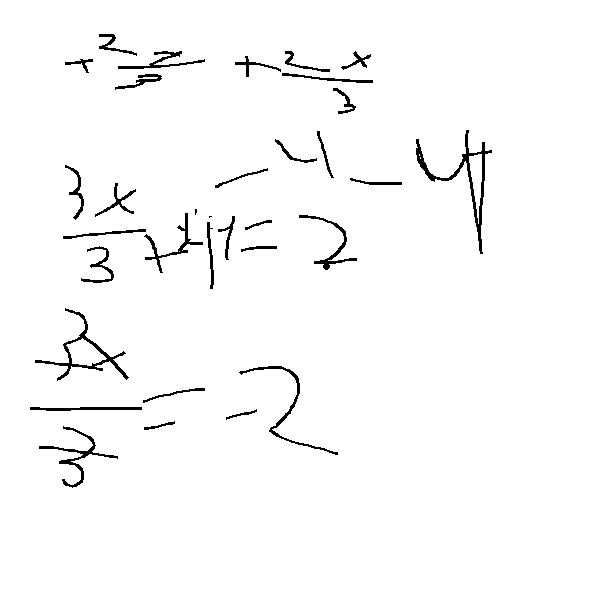 + 2x/3 + 2x/3
-4 -4
3x/3 + 4 = 2
3x/3 = -2